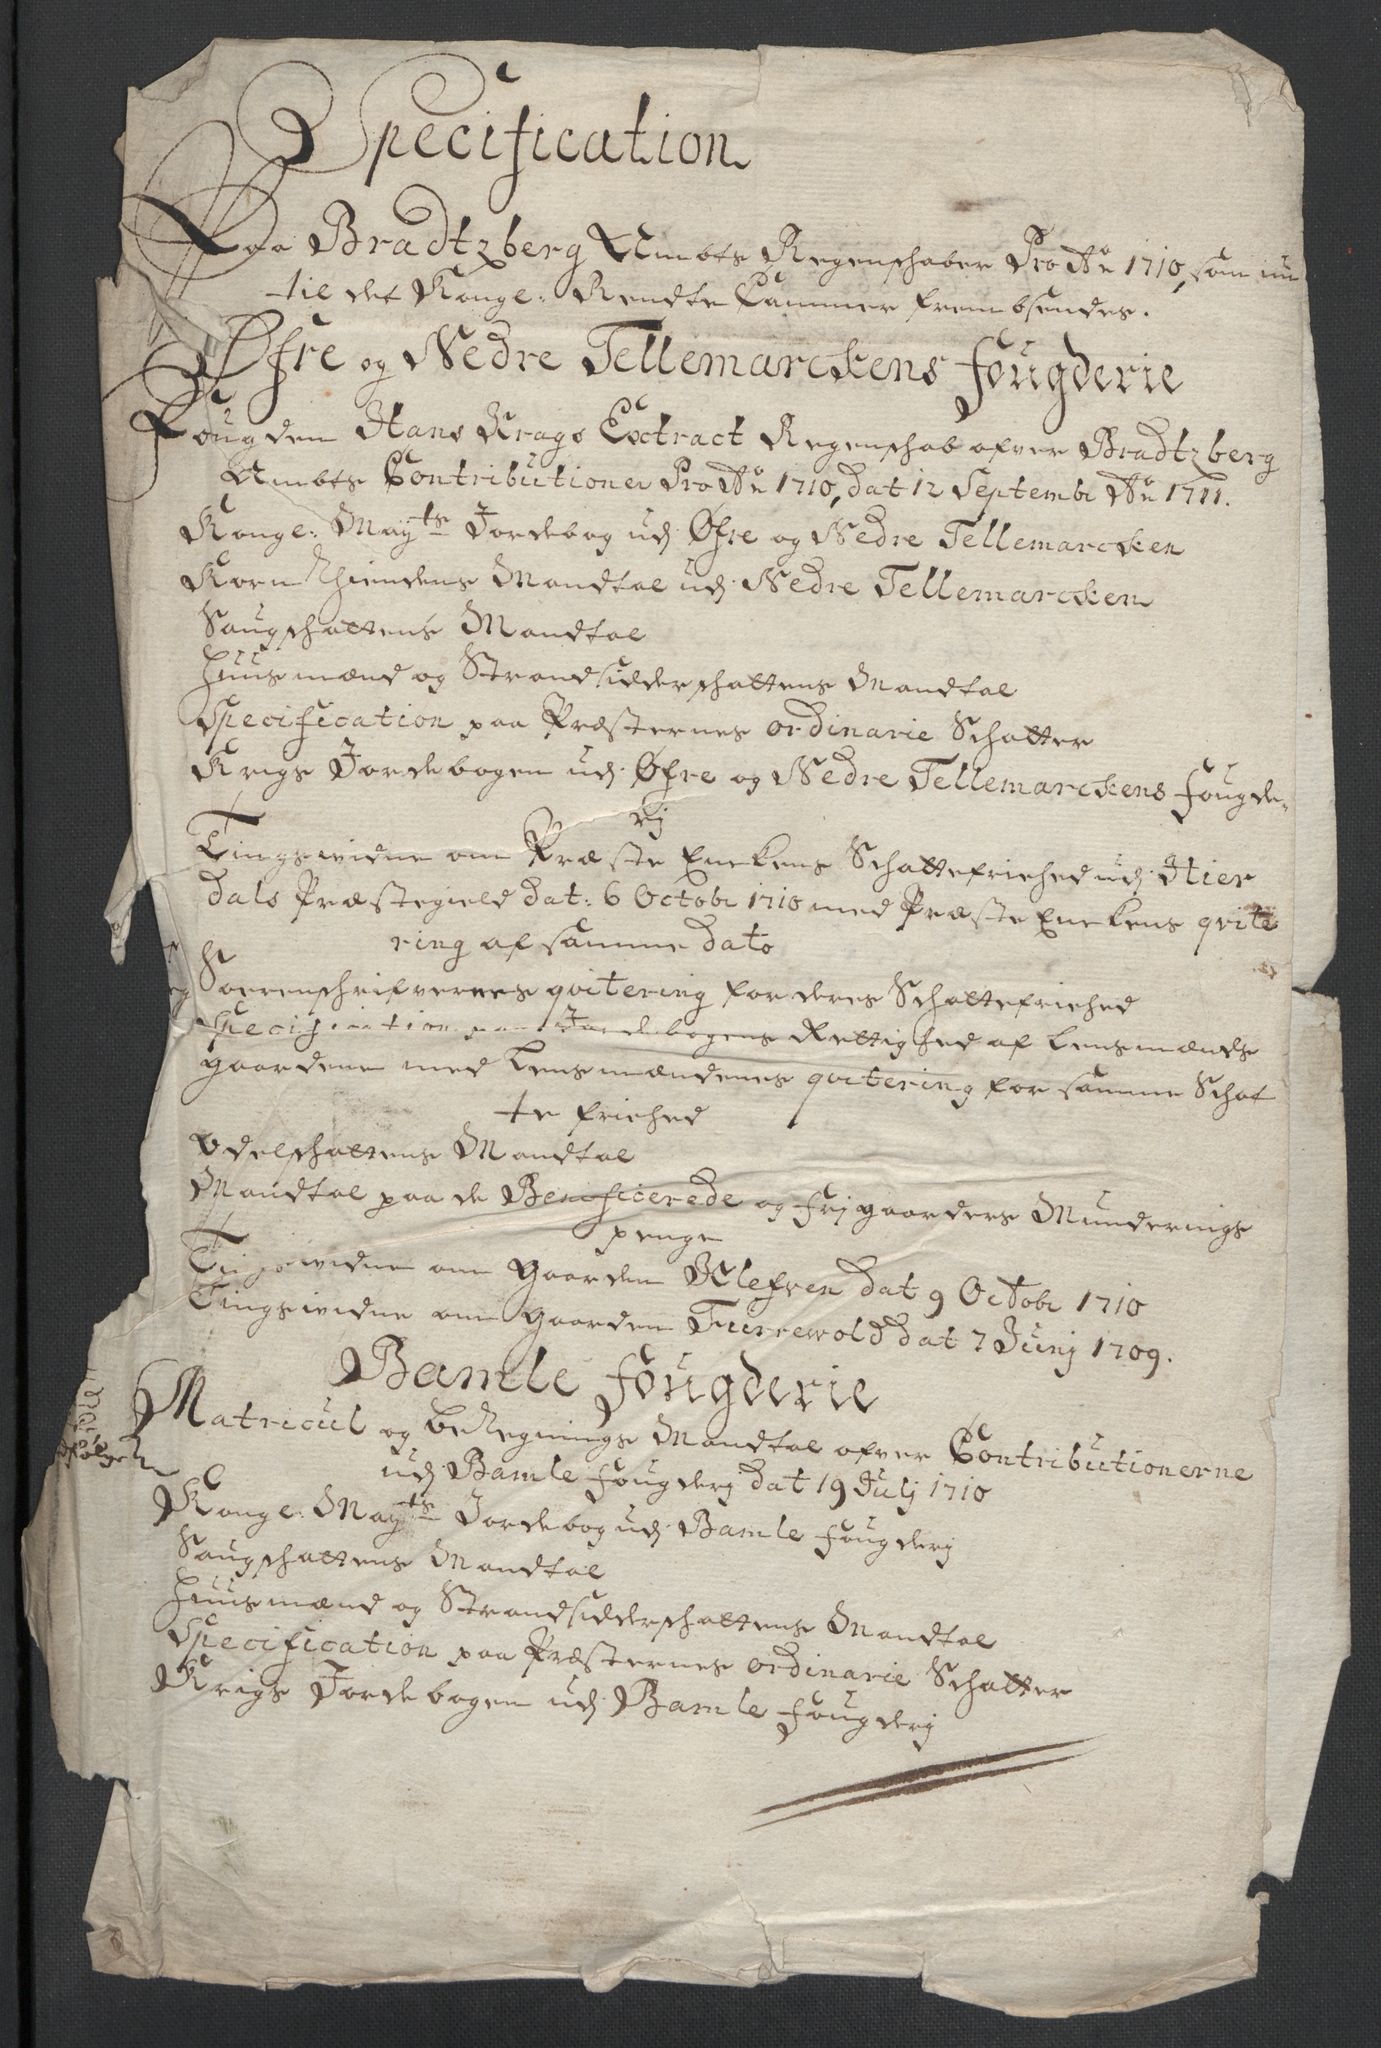 Specification
Paa Bradtzberg Ambts Regenschaber Pro Ao 1710, som nu
til det Konge: Rendte Cammer frembsendes.
Øfre og Nedre Tellemarckens fougderie
Fougden Hans Krags Extract Regenschab ofver Bradtzberg
Ambts Contributioner Pro Ao 1710, dat 12 Septembr Ao 1711.
Konge: Mayts Jordebog udj Øfre og Nedre Tellemarcken
Korn Thiendens Mandtal udj Nedre Tellemarcken
Saugschattens Mandtal
Huusmænd og Strandsidderschattens Mandtal
Specification paa Præsternes ordinarie Schatter
Krigs Jordebogen udj Øfre og Nedre Tellemarckens fougde-
rij
Tingsvidne om Præste Enekens Schattefriehed udj Hier
dals Præstegield dat: 6 Octobr 1710 med Præste Enekens qvite
ring af samme dato
Sorenschrifvernes qvitering for deres Schattefriehed
Specification paa Jordebogens Rettighed af Lensmands
gaardene med Lensmændenes qvitering for samme Schat
te friehed
Odelschattens Mandtal
Mandtal paa de Beneficerede og frjgaarders Munderings
penge
Tingsvidne om gaarden Klefven dat 9 Octobr 1710
Tingsvidne om gaarden Furrewold dat 7 Junj 1709.
Bamle fougderie
Matricul og beRegnings Mandtal ofver Contributionerne
udj Bamle fougderj dat 19 Julj 1710
Konge: Mayts Jordebog udj Bamle fougderj
Saugschattens Mandtal
Huusmænd og Strandsidderschattens Mandtal
Specification paa Præsternes ordinarie Schatter
Krigs Jordebogen udj Bamle fougderj